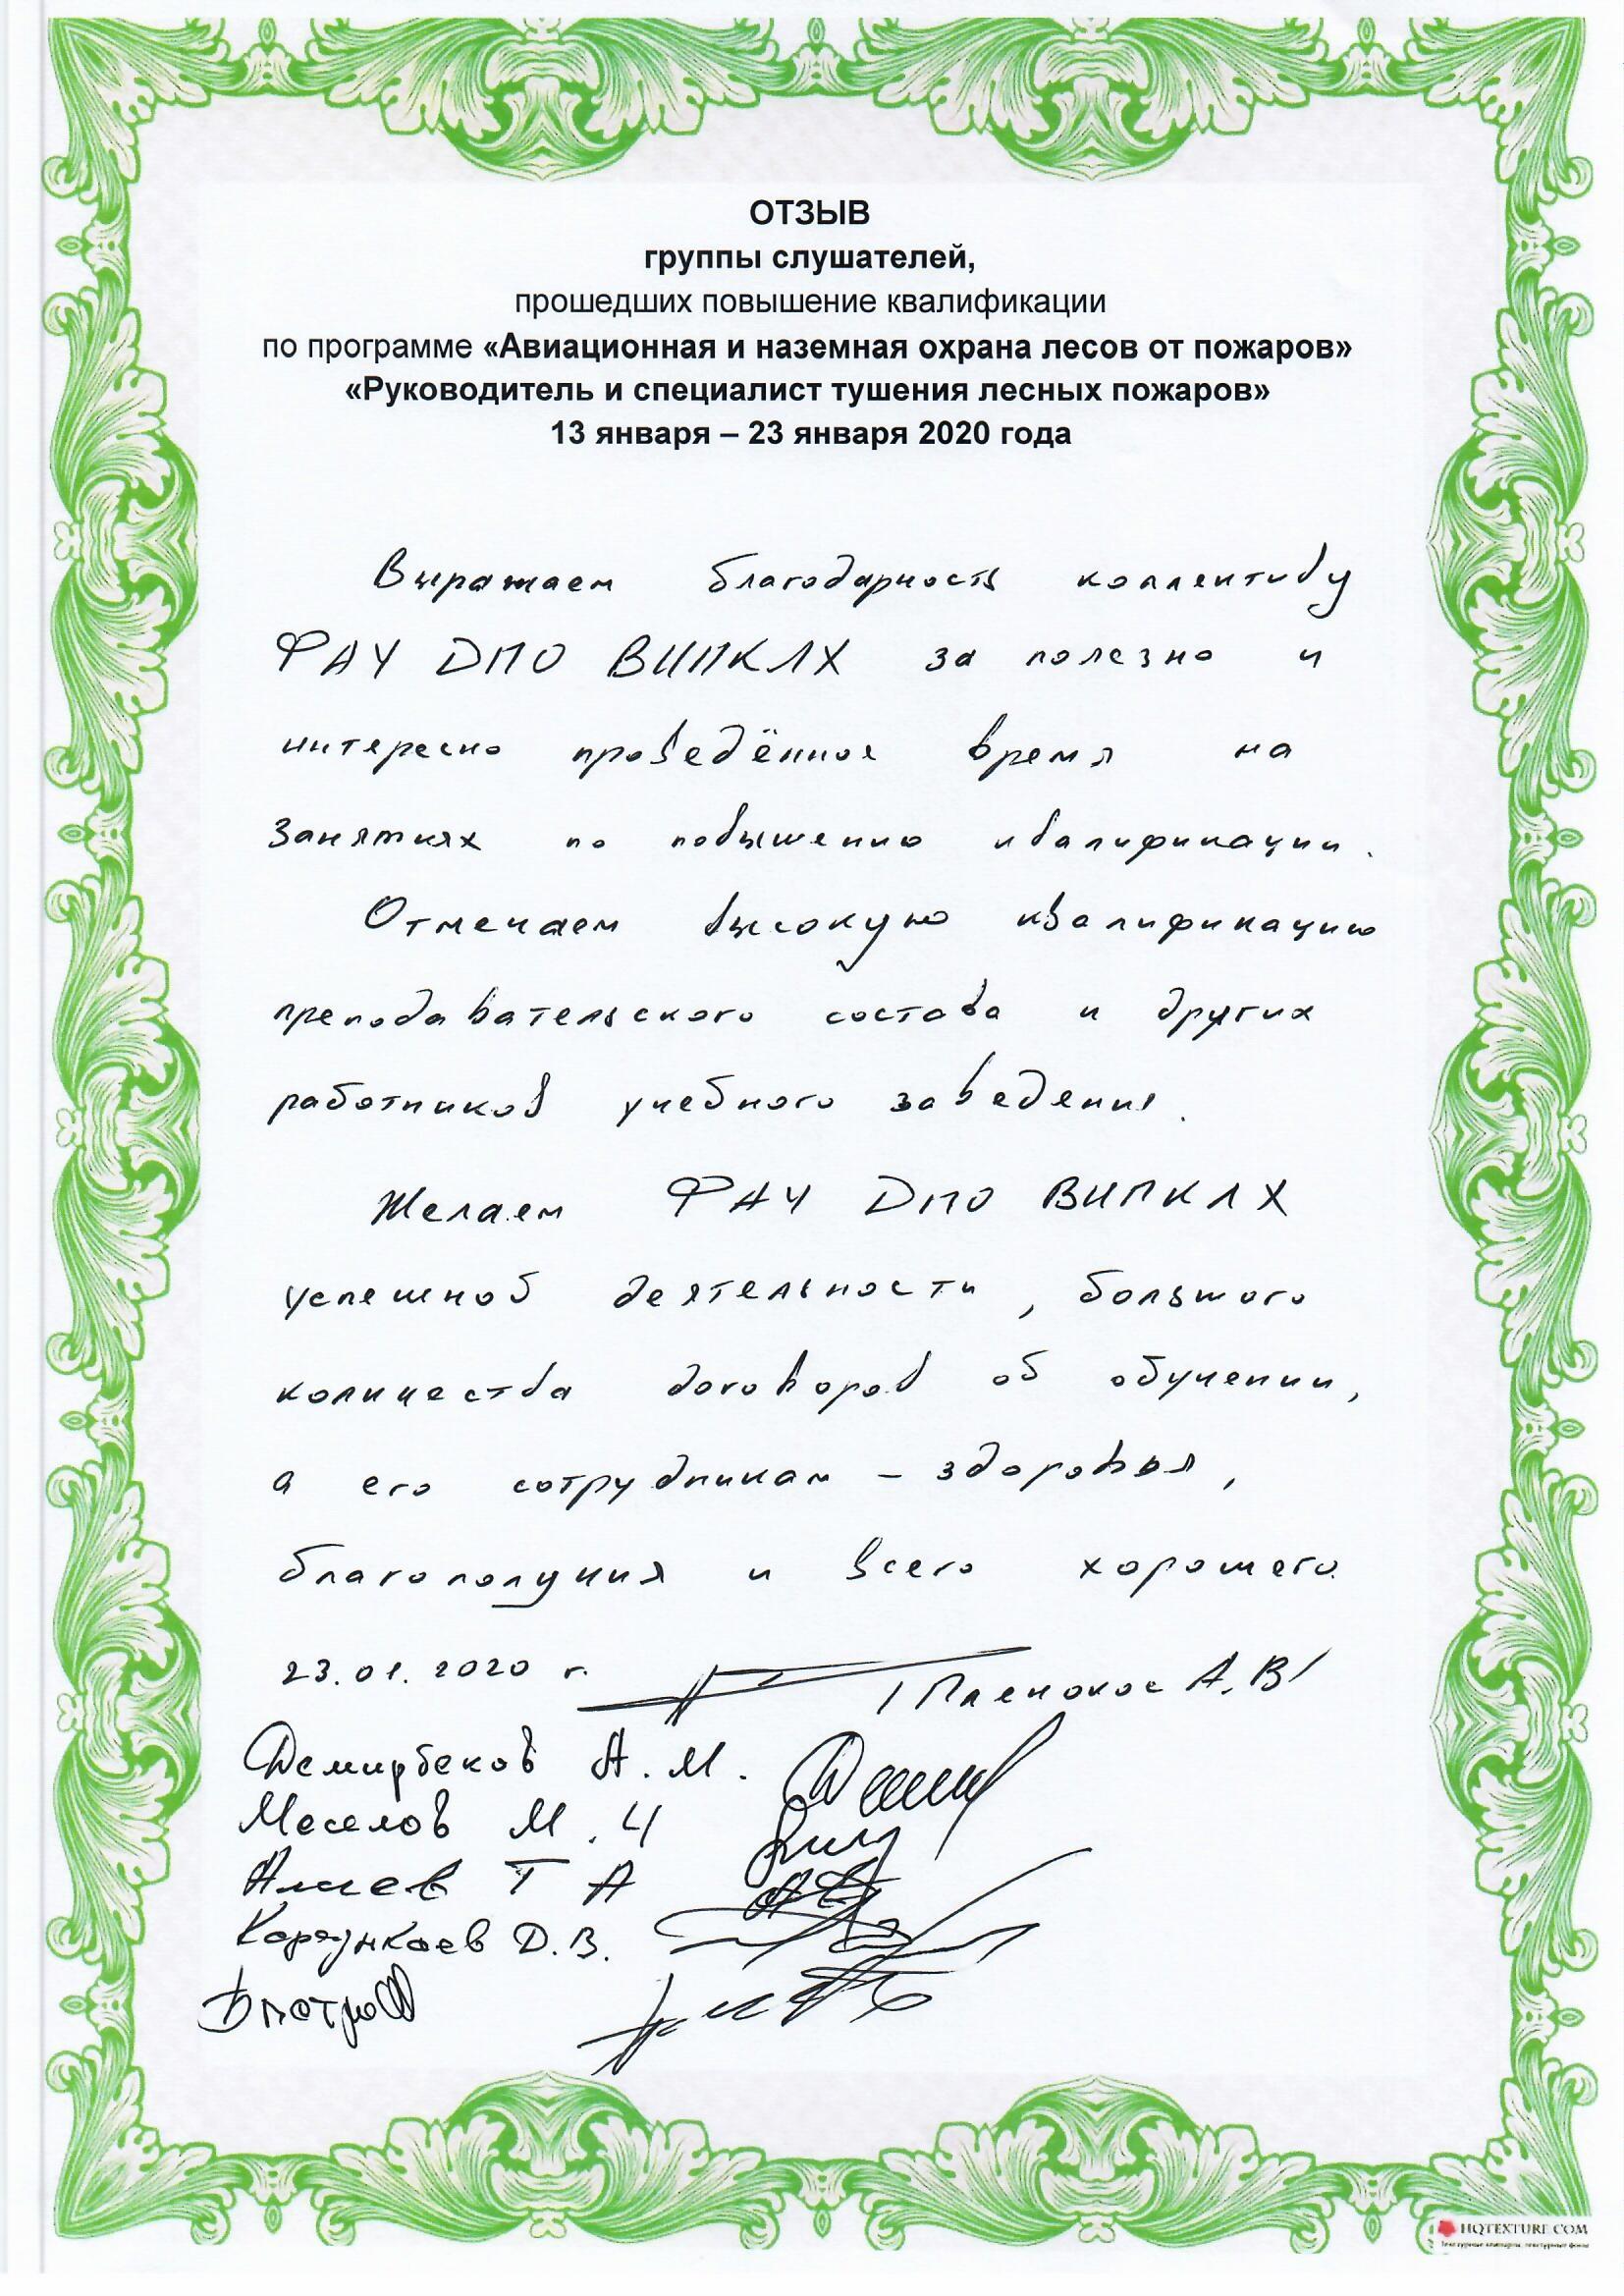 ОТЗЫВ
группы слушателей,
прошедших повышение квалификации
по программе «Авиационная и наземная охрана лесов от пожаров»
«Руководитель и специалист тушения лесных пожаров»
13 января – 23 января 2020 года
Выражаем благодарность коллективу
ФАУ ДПО ВИПКЛХ за полезно и
интересно проведённое время на
занятиях по повышению квалификации.
Отмечаем высокую квалификацию
преподавательского состава и других
работников учебного заведения.
Желаем ФАУ ДПО ВИПКЛХ
успешной деятельности, большого
количества договоров об обучении,
а его сотрудникам – здоровья,
благополучия и всего хорошего.
23.01.2020 г.
А.В/
Демирбеков А.М.
М.Ч
Алиев Т А
Д.В.
HQTEXTURE.COM